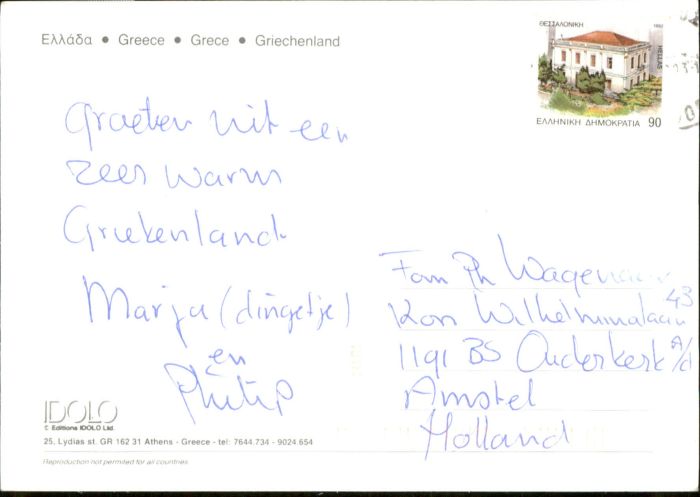 Ελλάδα • Greece • Grece • Griechenland
ΘΕΣΣΑΛΟΝΙΚΗ 1992
HELLAS
ΕΛΛΗΝΙΚΗ ΔΗΜΟΚΡΑΤΙΑ 90
Groeten uit een
zeer warm
Griekenland
Marja (dingetje)
en
Philip
Fam Ph Wagenaar
Kon Wilhelminalaan 43
1191 BS Ouderkerk a/d
Amstel
Holland
IDOLO
© Editions IDOLO Ltd.
25, Lydias st. GR 162 31 Athens - Greece - tel: 7644.734 - 9024.654
Reproduction not permited for all countries